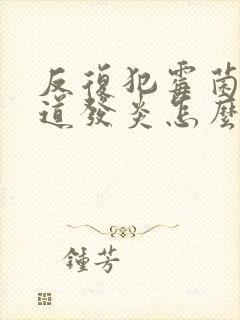 反復犯霉菌
道發炎怎麼
鍾芳